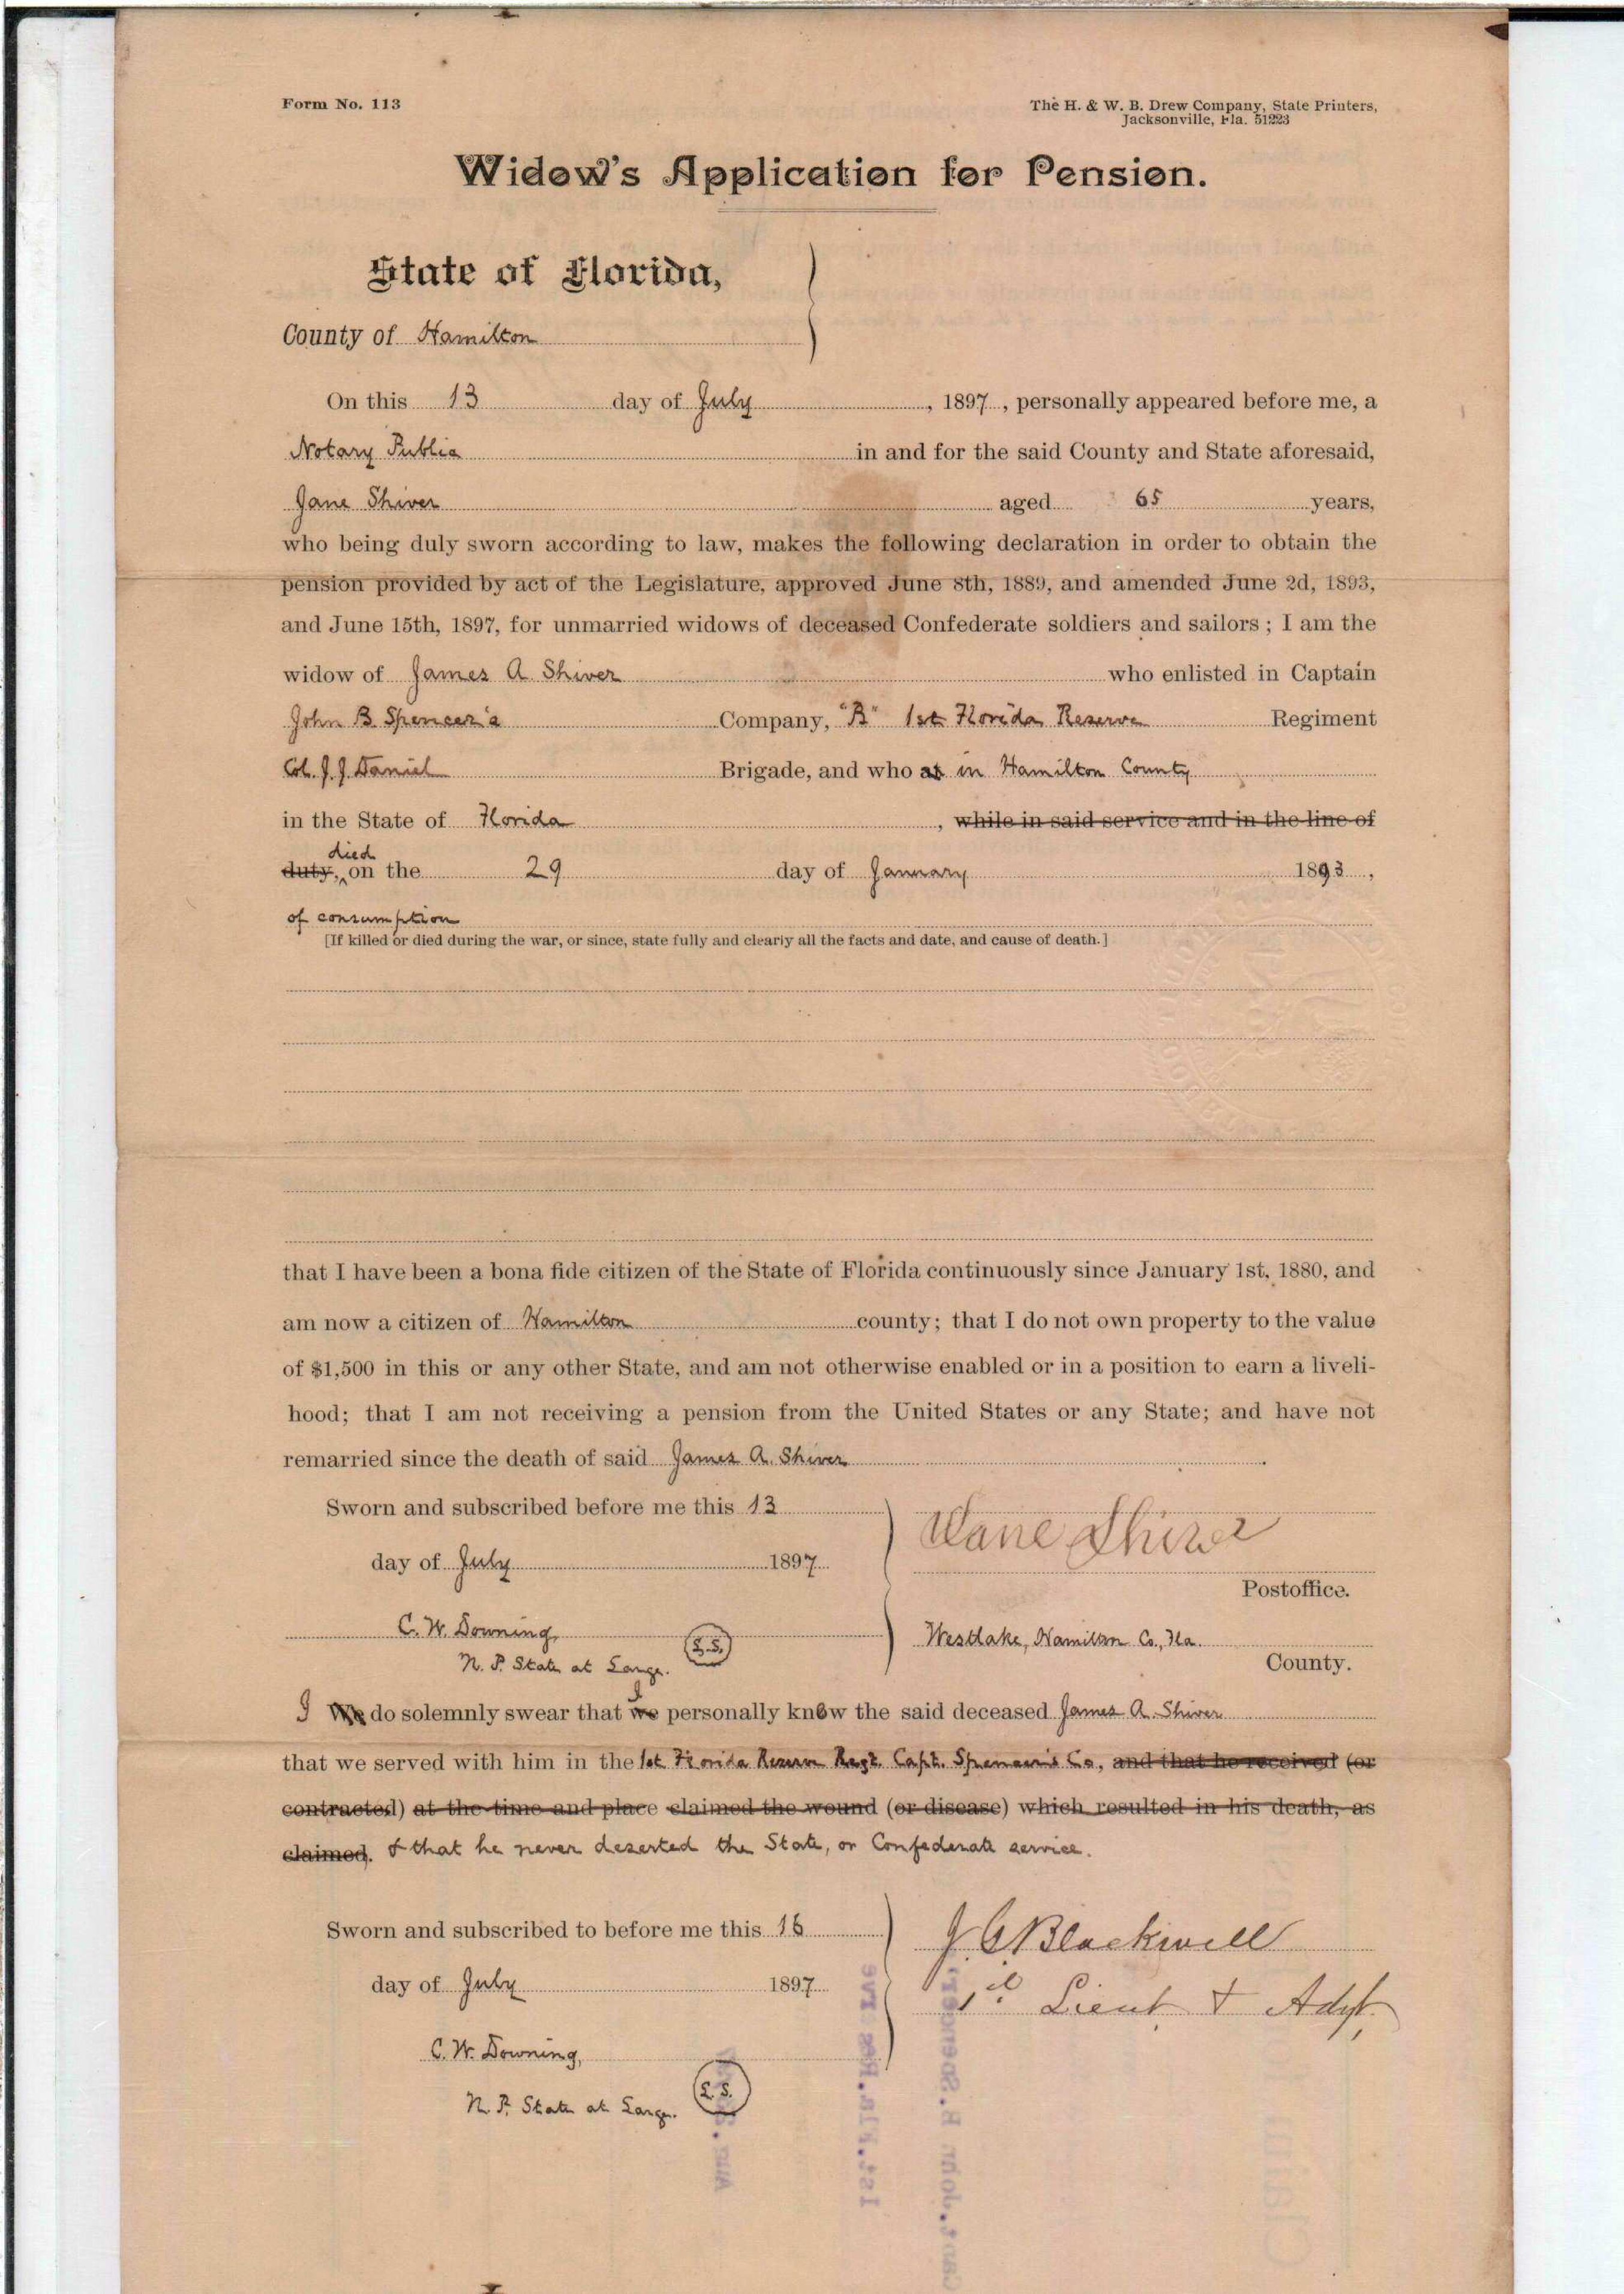 Form No. 113
The H. & W. B. Drew Company, State Printers,
Jacksonville, Fla. 51223
Widow's Application for Pension.
State of Florida,
County of Hamilton
On this 13 day of July, 1897, personally appeared before me, a
Notary Public in and for the said County and State aforesaid,
Jane Shiver aged 65 years,
who being duly sworn according to law, makes the following declaration in order to obtain the
pension provided by act of the Legislature, approved June 8th, 1889, and amended June 2d, 1893,
and June 15th, 1897, for unmarried widows of deceased Confederate soldiers and sailors; I am the
widow of James A Shiver who enlisted in Captain
John B Spencer's Company, "B" 1st Florida Reserve Regiment
Col. J. J. Daniel Brigade, and who at in Hamilton County
in the State of Florida, while in said service and in the line of
died
duty, on the 29 day of January 1893,
of consumption
[If killed or died during the war, or since, state fully and clearly all the facts and date, and cause of death.]
that I have been a bona fide citizen of the State of Florida continuously since January 1st, 1880, and
am now a citizen of Hamilton county; that I do not own property to the value
of $1,500 in this or any other State, and am not otherwise enabled or in a position to earn a liveli-
hood; that I am not receiving a pension from the United States or any State; and have not
remarried since the death of said James A. Shiver.
Sworn and subscribed before me this 13
Jane Shiver
day of July 1897
Postoffice.
C. W. Downing,
N. P. State at Large. L.S.
Westlake, Hamilton Co., Fla.
County.
I We do solemnly swear that I we personally know the said deceased James A. Shiver
that we served with him in the 1st Florida Reserve Regt. Capt. Spencer's Co, and that he received (or
contracted) at the time and place claimed the wound (or disease) which resulted in his death, as
claimed. & that he never deserted the State, or Confederate service.
Sworn and subscribed to before me this 16
J. G Blackwell
day of July 1897
1st Lieut & Adjt.
C. W. Downing,
N. P. State at Large. L.S.